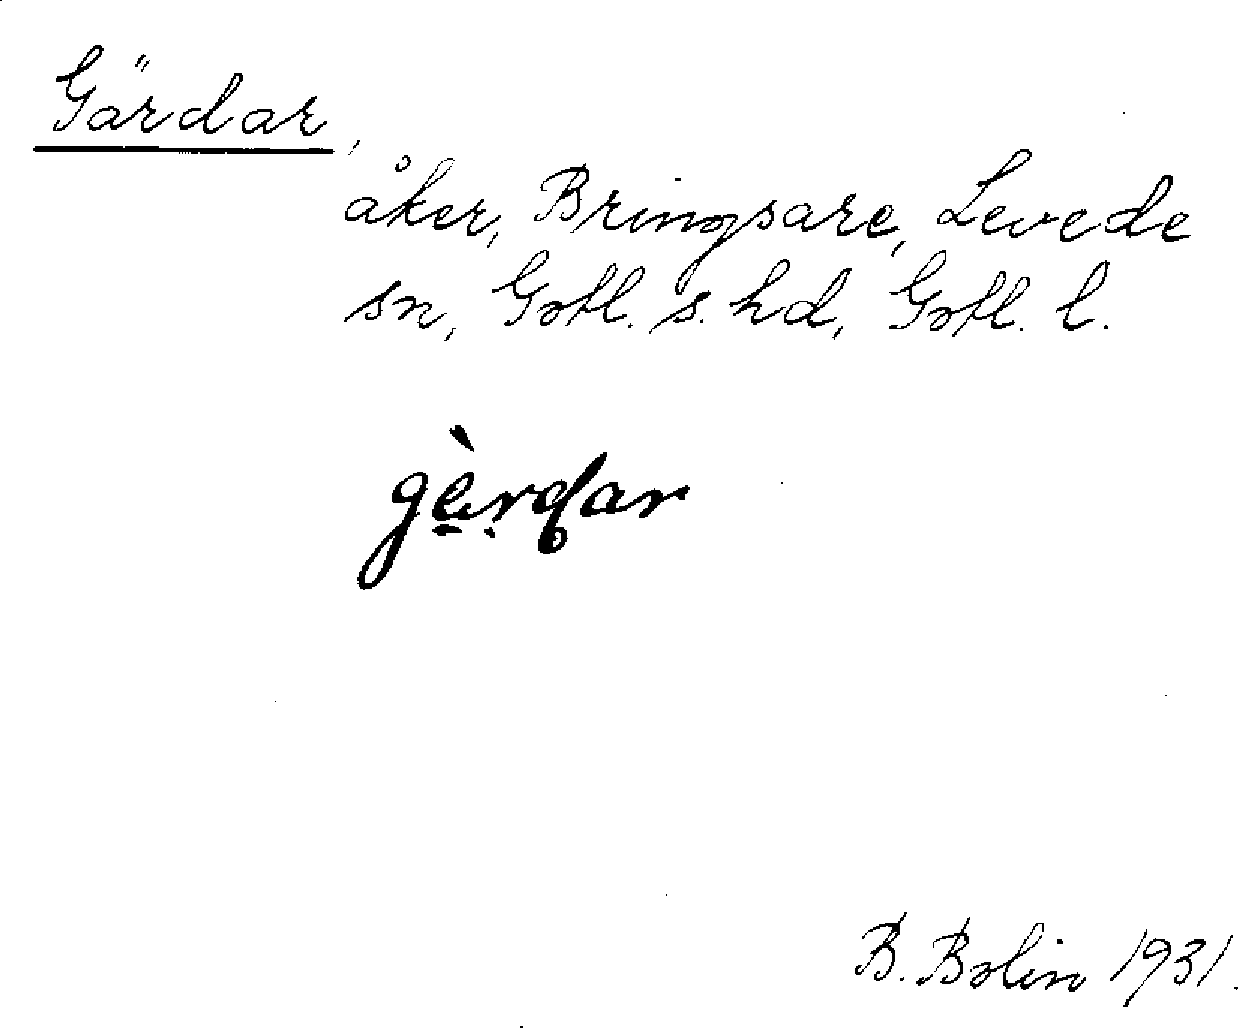 Gärdar,
åker, Bringsare, Levede
sn, Gotl. s. hd, Gotl. l.
gè̠rḍar
B. Bolin 1931.